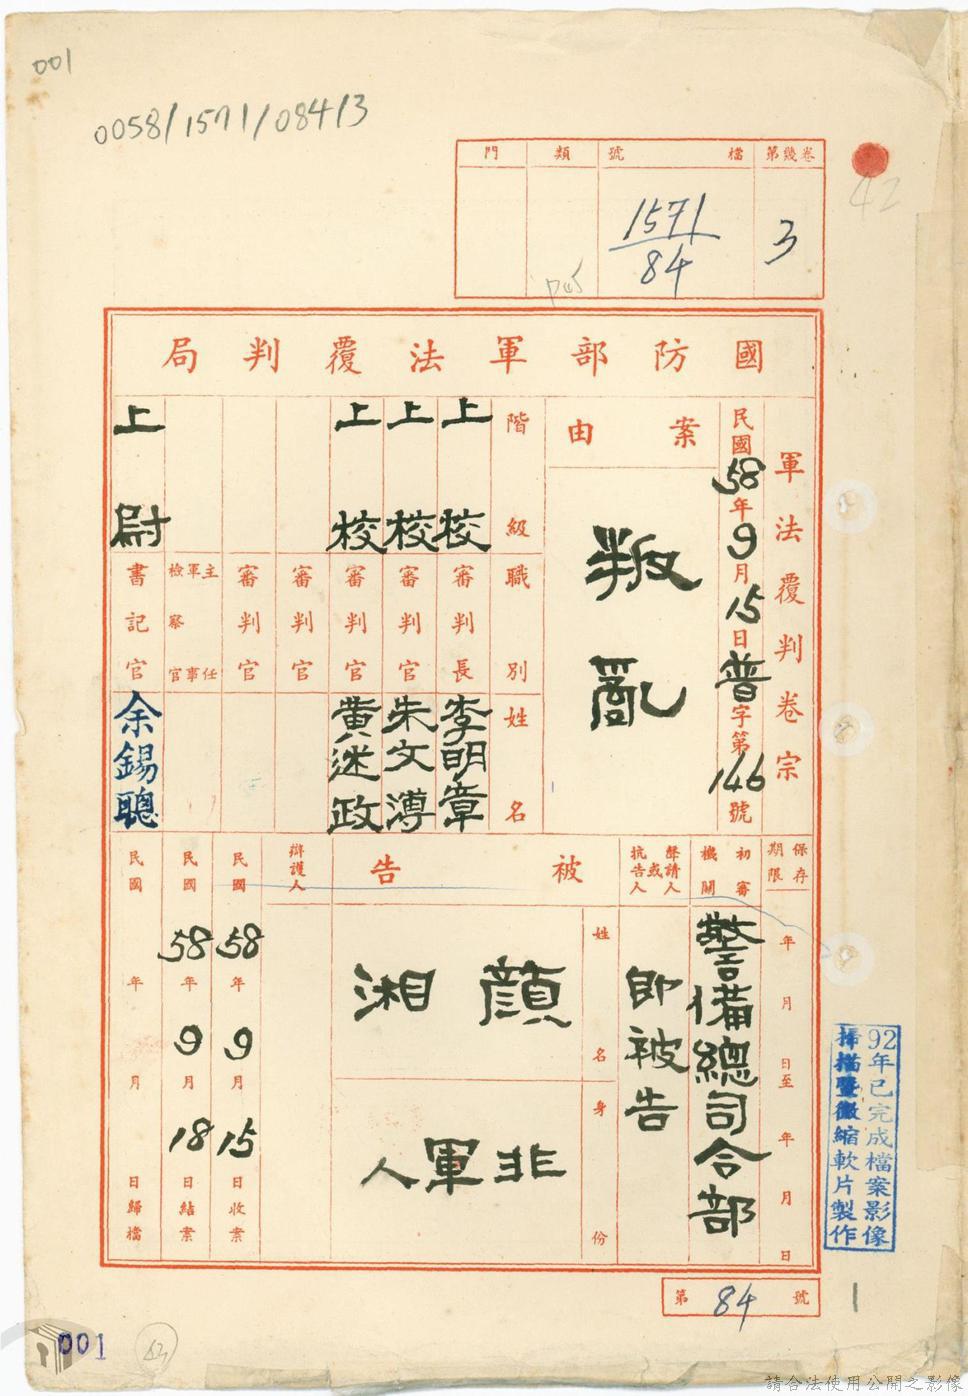 001
0058/1571/084/3
第幾卷
3
檔號
1571
84
類
門
42
國防部軍法覆判局
軍法覆判卷宗
民國58年9月15日普字第146號
案由
叛亂
階級
職別
姓名
上校
審判長
李明章
上校
審判官
朱文溥
上校
審判官
黃述政
審判官
審判官
主任軍事檢察官
上尉
書記官
余錫聰
保存期限
年月日至年月日
初審機關
警備總司令部
聲請人或抗告人
即被告
被告
姓名
顏湘
身份
非軍人
辯護人
民國58年9月15日收案
民國58年9月18日結案
民國年月日歸檔
92年已完成檔案影像
掃描暨微縮軟片製作
第84號
1
001
請合法使用公開之影像